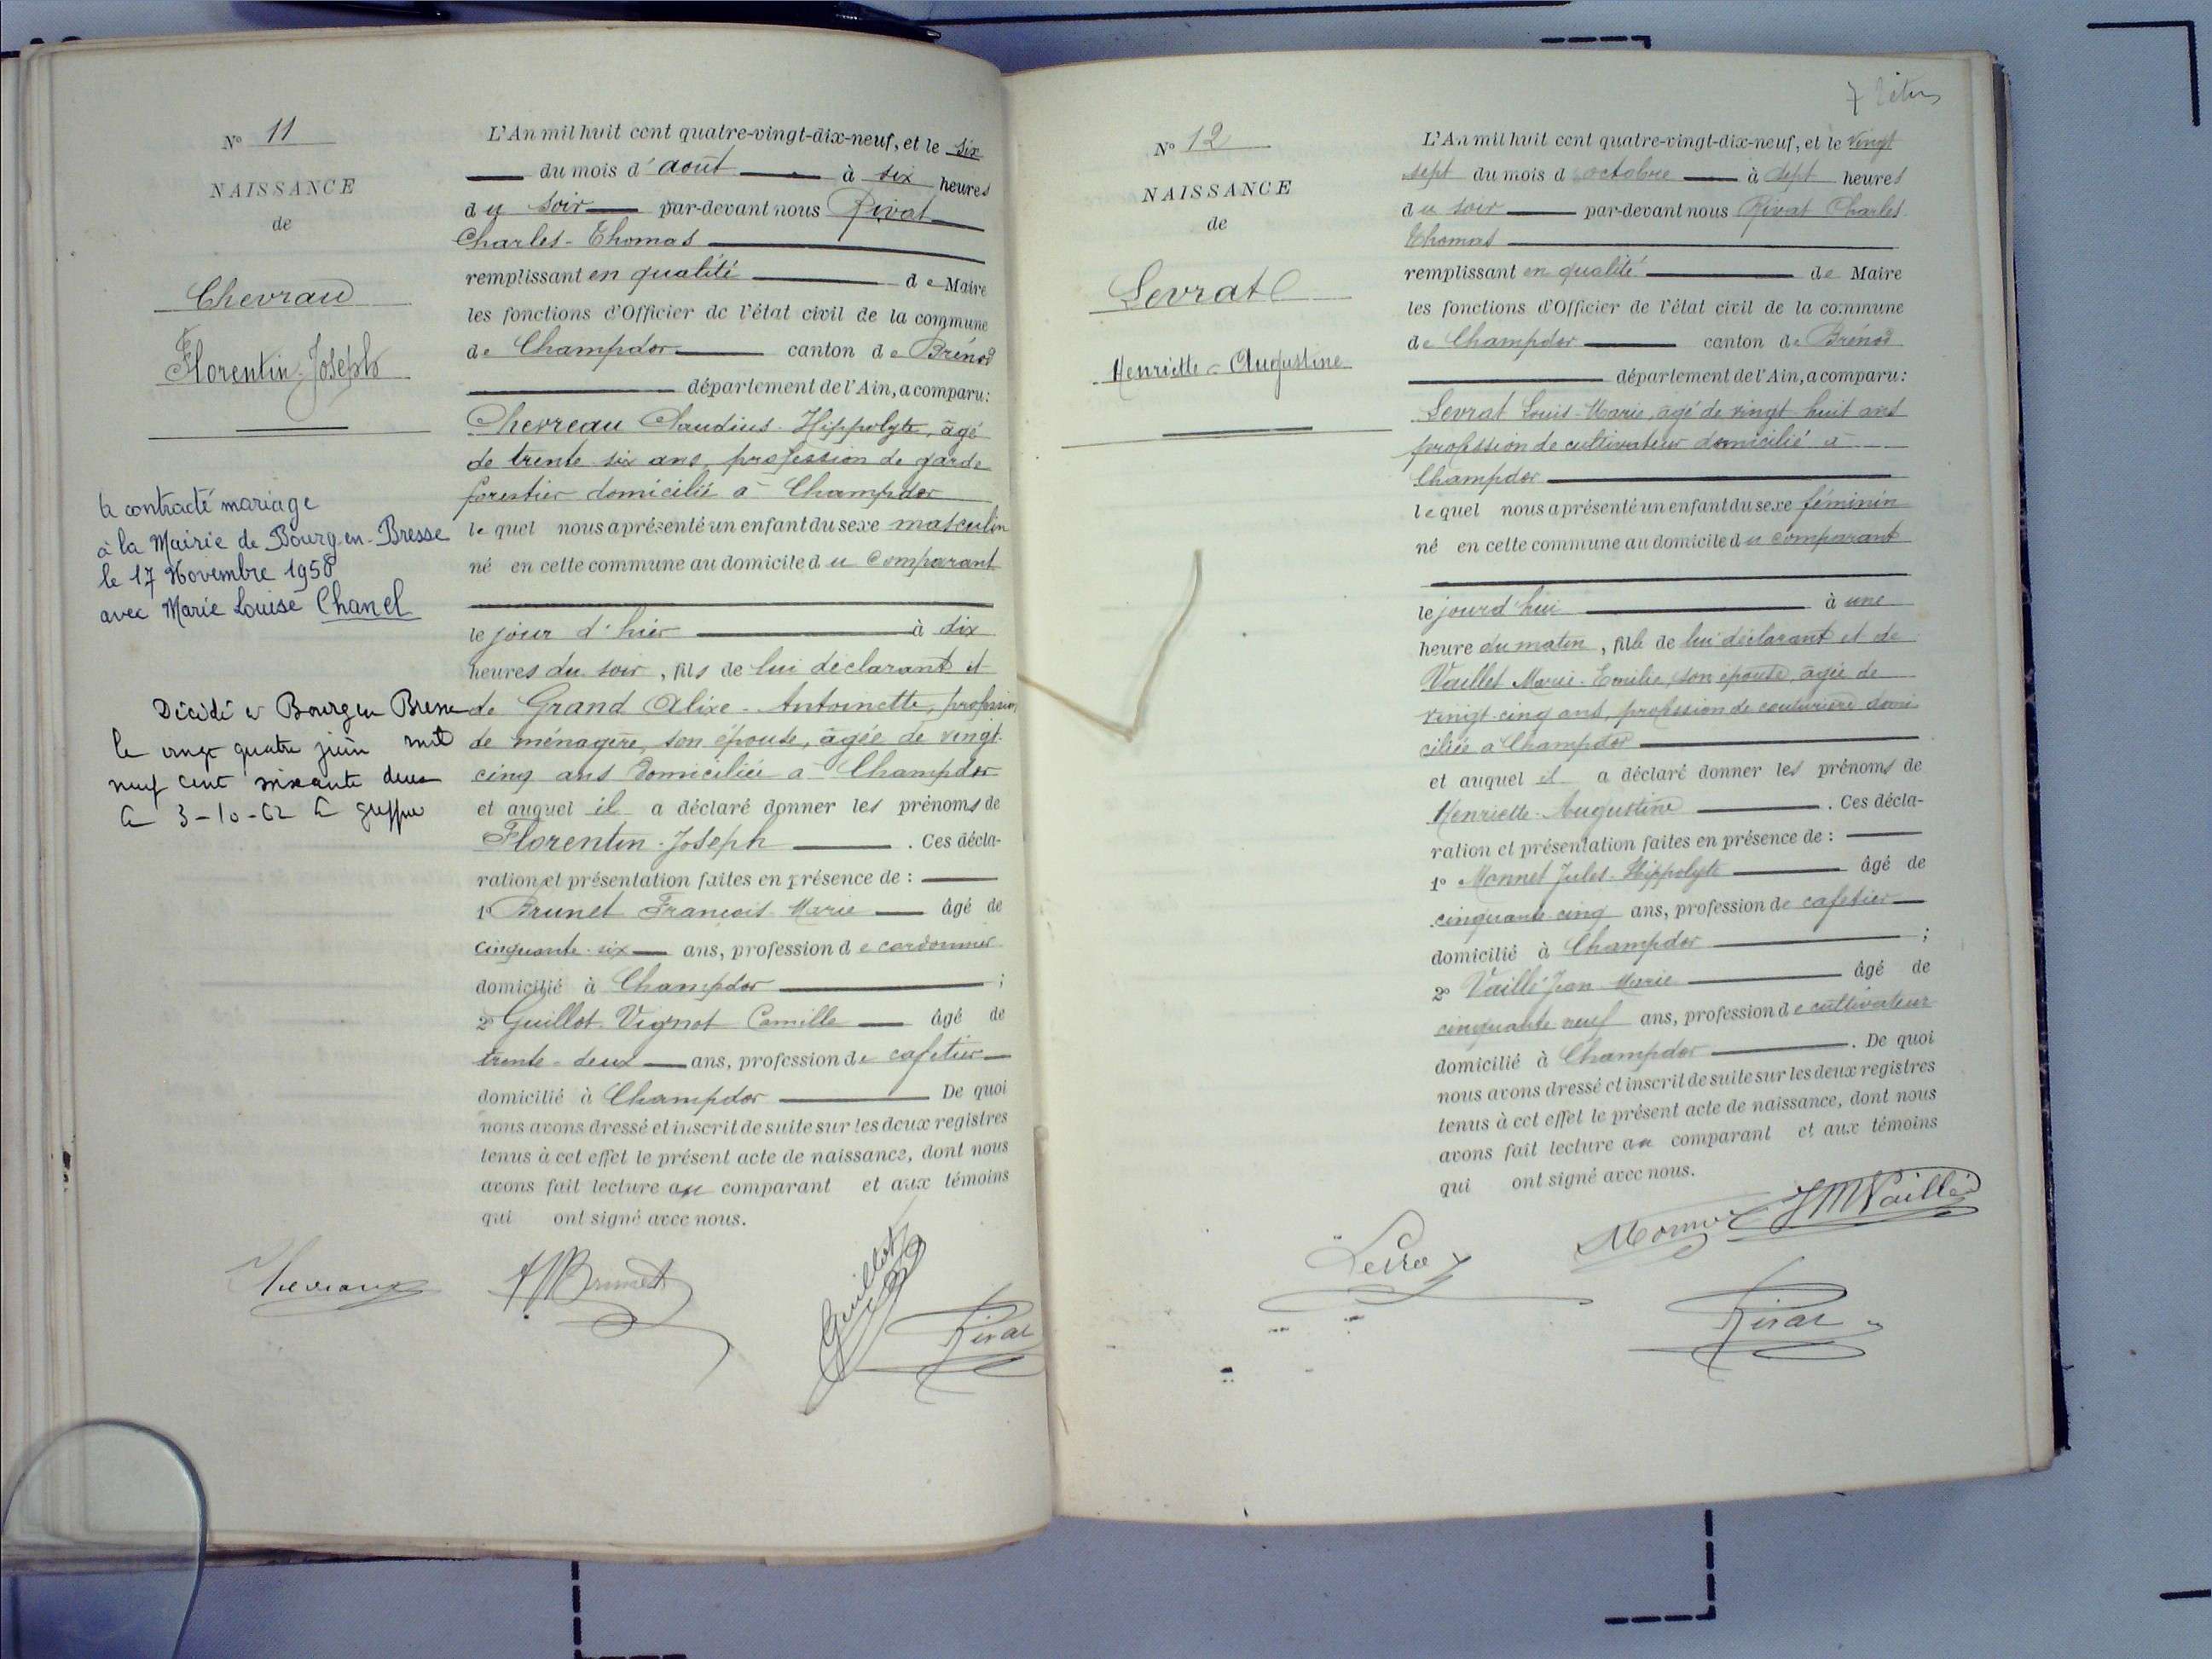 N° 11
NAISSANCE
de
Chevrau
Florentin-Joseph
a contracté mariage
à la Mairie de Bourg-en-Bresse
le 17 Novembre 1958
avec Marie Louise Chanel
Décédé à Bourg en Bresse
le vingt quatre juin mil
neuf cent soixante deux
Le 3-10-62 Le greffier
L'An mil huit cent quatre-vingt-dix-neuf, et le six
du mois d'août à six heures
du soir par-devant nous Rivat
Charles-Thomas
remplissant en qualité de Maire
les fonctions d'Officier de l'état civil de la commune
de Champdor canton de Brénod
département de l'Ain, a comparu:
Chevreau Claudius-Hippolyte, âgé
de trente six ans, profession de garde
forestier domicilié à Champdor
lequel nous a présenté un enfant du sexe masculin
né en cette commune au domicile du comparant
le jour d'hier à dix
heures du soir, fils de lui déclarant et
de Grand Alixe-Antoinette, profession
de ménagère, son épouse, âgée de vingt
cinq ans domiciliée à Champdor
et auquel il a déclaré donner les prénoms de
Florentin-Joseph . Ces décla-
ration et présentation faites en présence de :
1° Brunet François-Marie âgé de
cinquante-six ans, profession de cordonnier
domicilié à Champdor ;
2° Guillot-Vignot Camille âgé de
trente-deux ans, profession de cafetier
domicilié à Champdor De quoi
nous avons dressé et inscrit de suite sur les deux registres
tenus à cet effet le présent acte de naissance, dont nous
avons fait lecture au comparant et aux témoins
qui ont signé avec nous.
Brunet
Guillot
Rivat
N° 12
NAISSANCE
de
Levrat
Henriette-Augustine
L'An mil huit cent quatre-vingt-dix-neuf, et le vingt
sept du mois d octobre à sept heures
du soir par-devant nous Rivat Charles
Thomas
remplissant en qualité de Maire
les fonctions d'Officier de l'état civil de la commune
de Champdor canton de Brénod
département de l'Ain, a comparu:
Levrat Louis-Marie, âgé de vingt huit ans
profession de cultivateur domicilié à
Champdor
lequel nous a présenté un enfant du sexe féminin
né en cette commune au domicile du comparant
le jourd'hui à une
heure du matin, fille de lui déclarant et de
Vaillet Marie-Emilie, son épouse, âgée de
vingt-cinq ans, profession de couturière domi
ciliée à Champdor
et auquel il a déclaré donner les prénoms de
Henriette-Augustine . Ces décla-
ration et présentation faites en présence de :
1° Monnet Jules-Hippolyte âgé de
cinquante cinq ans, profession de cafetier
domicilié à Champdor ;
2° Vaillé Jean Marie âgé de
cinquante neuf ans, profession de cultivateur
domicilié à Champdor . De quoi
nous avons dressé et inscrit de suite sur les deux registres
tenus à cet effet le présent acte de naissance, dont nous
avons fait lecture au comparant et aux témoins
qui ont signé avec nous.
JM Vaillé
Rivat